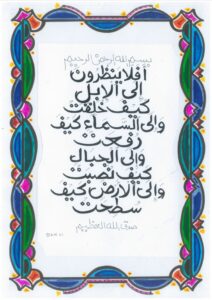 بسم الله الرحمن الرحيم
أفلا ينظرون
إلى الإبل
كيف خلقت
وإلى السماء كيف
رفعت
وإلى الجبال
كيف نصبت
وإلى الأرض كيف
سطحت
صدق الله العظيم